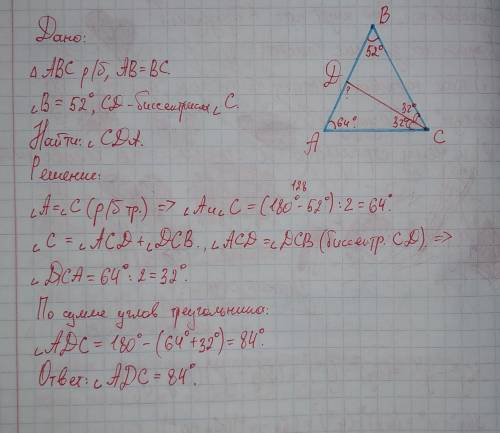 Дано:
Δ ABC р/б, AB = BC.
∠B = 52°, CD - биссектриса ∠C.
Найти: ∠CDA.
Решение:
∠A = ∠C (р/б тр.) => ∠A и ∠C = (180° - 52°) : 2 = 64°.
128
∠C = ∠ACD + ∠DCB., ∠ACD = ∠DCB (биссектр. CD), =>
∠DCA = 64° : 2 = 32°.
По сумме углов треугольника:
∠ADC = 180° - (64° + 32°) = 84°.
Ответ: ∠ADC = 84°.
B
52°
D
?
32°
A
64°
32°
C